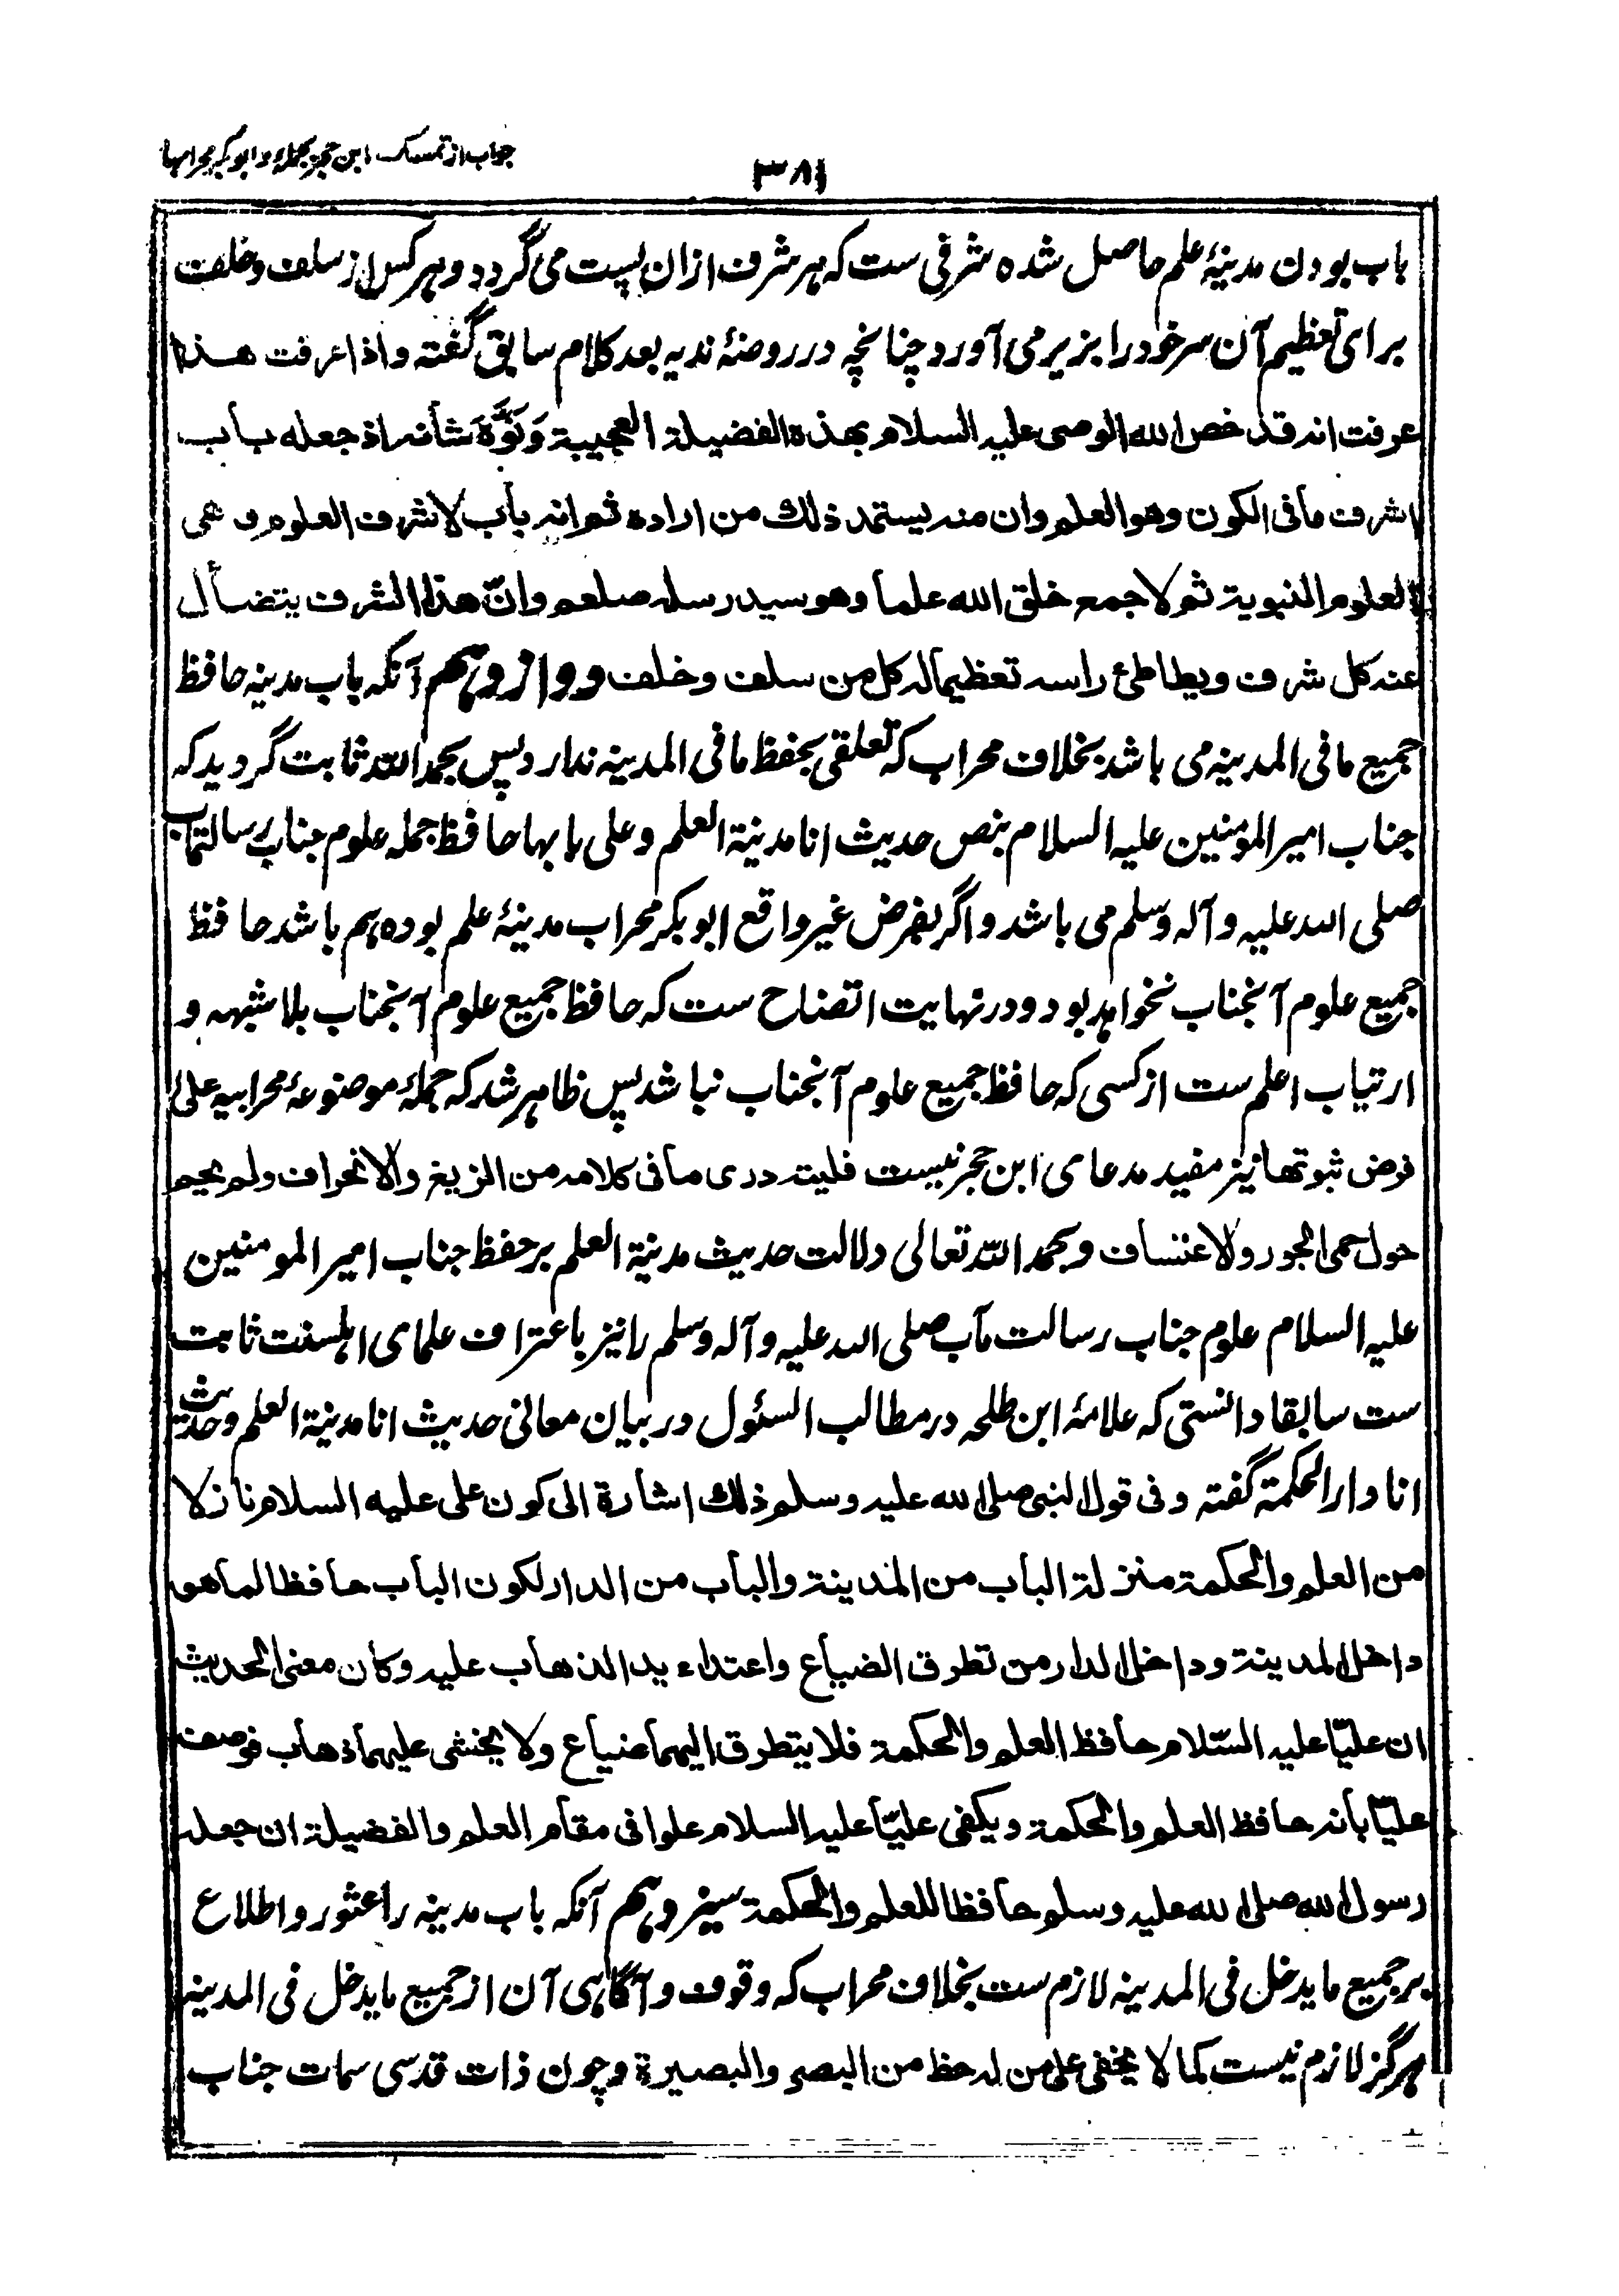 جواب از تمسک ابن حجر بجمله و ابو بکر محرابها
۳۸۱
باب بودن مدینهٔ علم حاصل شده شرفی ست که هر شرف ازان پست می گردد و هر کس از سلف و خلف
برای تعظیم آن سر خود را بزیر می آورد چنانچه در روضهٔ ندیه بعد کلام سابق گفته و اذا عرفت هذا
عرفت انه قد خص الله الوصی علیه السلام بهذه الفضیلة العجیبة وَنَوَّهَ شأنه اذ جعله باب
اشرف ما فی الکون وهو العلم وان منه یستمد ذلك من اراده ثم انه باب لاشرف العلوم و هی
العلوم النبویة ثم لاجمع خلق الله علما وهو سید رسله صلعم وانّ هذا الشرف یتضأل
عنه کل شرف ویطاطئ راسه تعظیما له کل من سلف وخلف دوازدهم آنکه باب مدینه حافظ
جمیع ما فی المدینه می باشد بخلاف محراب که تعلقی بحفظ ما فی المدینه ندارد پس بحمد الله ثابت گردید که
جناب امیر المومنین علیه السلام بنص حدیث انا مدینة العلم و علی بابها حافظ جمله علوم جناب رسالتمآب
صلی الله علیه و آله وسلم می باشد و اگر بفرض غیر واقع ابو بکر محراب مدینهٔ علم بوده هم باشد حافظ
جمیع علوم آنجناب نخواهد بود و در نهایت اتضاح ست که حافظ جمیع علوم آنجناب بلا شبهه و
ارتیاب اعلم ست از کسی که حافظ جمیع علوم آنجناب نباشد پس ظاهر شد که جملهٔ موضوعهٔ محرابیه علی
فرض ثبوتها نیز مفید مدعای ابن حجر نیست فلیته دری ما فی کلامه من الزیغ والانحراف ولم یحم
حول حمی الجور والاعتساف و بحمد الله تعالی دلالت حدیث مدینة العلم بر حفظ جناب امیر المومنین
علیه السلام علوم جناب رسالت مآب صلی الله علیه و آله وسلم را نیز باعتراف علمای اهلسنت ثابت
ست سابقا دانستی که علامهٔ ابن طلحه در مطالب السئول در بیان معانی حدیث انا مدینة العلم و حدیث
انا دار الحکمة گفته و فی قول النبی صلی الله علیه وسلم ذلك اشارة الی کون علی علیه السلام نازلا
من العلم والحکمة منزلة الباب من المدینة والباب من الدار لکون الباب حافظا لما هو
داخل المدینة وداخل الدار من تطرق الضیاع واعتداء ید الذهاب علیه وکان معنی الحدیث
ان علیّا علیه السّلام حافظ العلم والحکمة فلا یتطرق الیهما ضیاع ولا یخشی علیهما ذهاب فوصف
علیّا بأنه حافظ العلم والحکمة ویکفی علیّا علیه السلام علوا فی مقام العلم والفضیلة ان جعله
رسول الله صلی الله علیه وسلم حافظا للعلم والحکمة سیزدهم آنکه باب مدینه را عثور و اطلاع
بر جمیع ما یدخل فی المدینه لازم ست بخلاف محراب که وقوف و آگاهی آن از جمیع ما یدخل فی المدینه
هرگز لازم نیست کما لا یخفی علی من له حظ من البصر والبصیرة و چون ذات قدسی سمات جناب